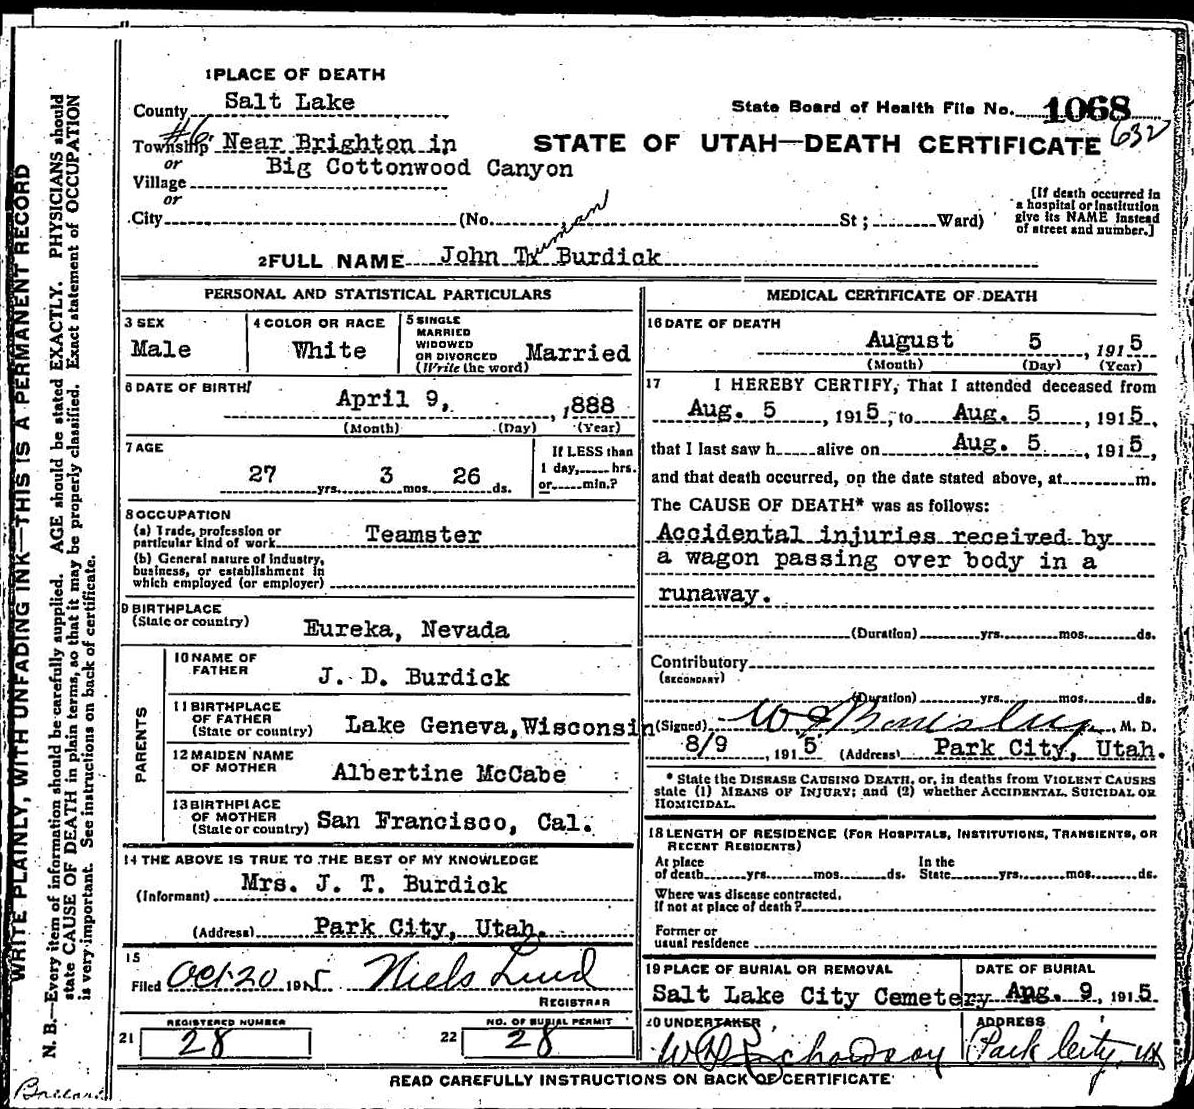 1 PLACE OF DEATH
County Salt Lake
State Board of Health File No. 1068
632
#6
Township Near Brighton in
STATE OF UTAH—DEATH CERTIFICATE
or
Big Cottonwood Canyon
Village
or
City (No. St; Ward)
[If death occurred in
a hospital or institution
give its NAME instead
of street and number.]
Truman
2 FULL NAME John T. Burdick
PERSONAL AND STATISTICAL PARTICULARS
3 SEX
Male
4 COLOR OR RACE
White
5 SINGLE
MARRIED
WIDOWED
OR DIVORCED
(Write the word)
Married
6 DATE OF BIRTH
April 9, , 1888
(Month) (Day) (Year)
7 AGE
27 yrs. 3 mos. 26 ds.
If LESS than
1 day, hrs.
or min.?
8 OCCUPATION
(a) Trade, profession or
particular kind of work Teamster
(b) General nature of industry,
business, or establishment in
which employed (or employer)
9 BIRTHPLACE
(State or country)
Eureka, Nevada
PARENTS
10 NAME OF
FATHER
J. D. Burdick
11 BIRTHPLACE
OF FATHER
(State or country)
Lake Geneva, Wisconsin
12 MAIDEN NAME
OF MOTHER
Albertine McCabe
13 BIRTHPLACE
OF MOTHER
(State or country)
San Francisco, Cal.
14 THE ABOVE IS TRUE TO THE BEST OF MY KNOWLEDGE
(Informant) Mrs. J. T. Burdick
(Address) Park City, Utah.
15
Filed Oct 20 1915 Niels Lund
REGISTRAR
MEDICAL CERTIFICATE OF DEATH
16 DATE OF DEATH
August 5 , 1915
(Month) (Day) (Year)
17 I HEREBY CERTIFY, That I attended deceased from
Aug. 5 , 1915, to Aug. 5 , 1915,
that I last saw h alive on Aug. 5 , 1915,
and that death occurred, on the date stated above, at m.
The CAUSE OF DEATH* was as follows:
Accidental injuries received by
a wagon passing over body in a
runaway.
(Duration) yrs. mos. ds.
Contributory
(SECONDARY)
(Duration) yrs. mos. ds.
(Signed) M. D.
8/9 , 1915 (Address) Park City, Utah.
* State the DISEASE CAUSING DEATH, or, in deaths from VIOLENT CAUSES
state (1) MEANS OF INJURY; and (2) whether ACCIDENTAL, SUICIDAL OR
HOMICIDAL.
18 LENGTH OF RESIDENCE (FOR HOSPITALS, INSTITUTIONS, TRANSIENTS, OR
RECENT RESIDENTS)
At place
of death yrs. mos. ds.
In the
State yrs. mos. ds.
Where was disease contracted,
if not at place of death?
Former or
usual residence
19 PLACE OF BURIAL OR REMOVAL
Salt Lake City Cemetery
DATE OF BURIAL
Aug. 9, 1915
20 UNDERTAKER
W D Richardson
ADDRESS
Park City, Ut
21 REGISTERED NUMBER
28
22 NO. OF BURIAL PERMIT
28
READ CAREFULLY INSTRUCTIONS ON BACK OF CERTIFICATE
WRITE PLAINLY, WITH UNFADING INK—THIS IS A PERMANENT RECORD
N. B.—Every item of information should be carefully supplied. AGE should be stated EXACTLY. PHYSICIANS should
state CAUSE OF DEATH in plain terms, so that it may be properly classified. Exact statement of OCCUPATION
is very important. See instructions on back of certificate.